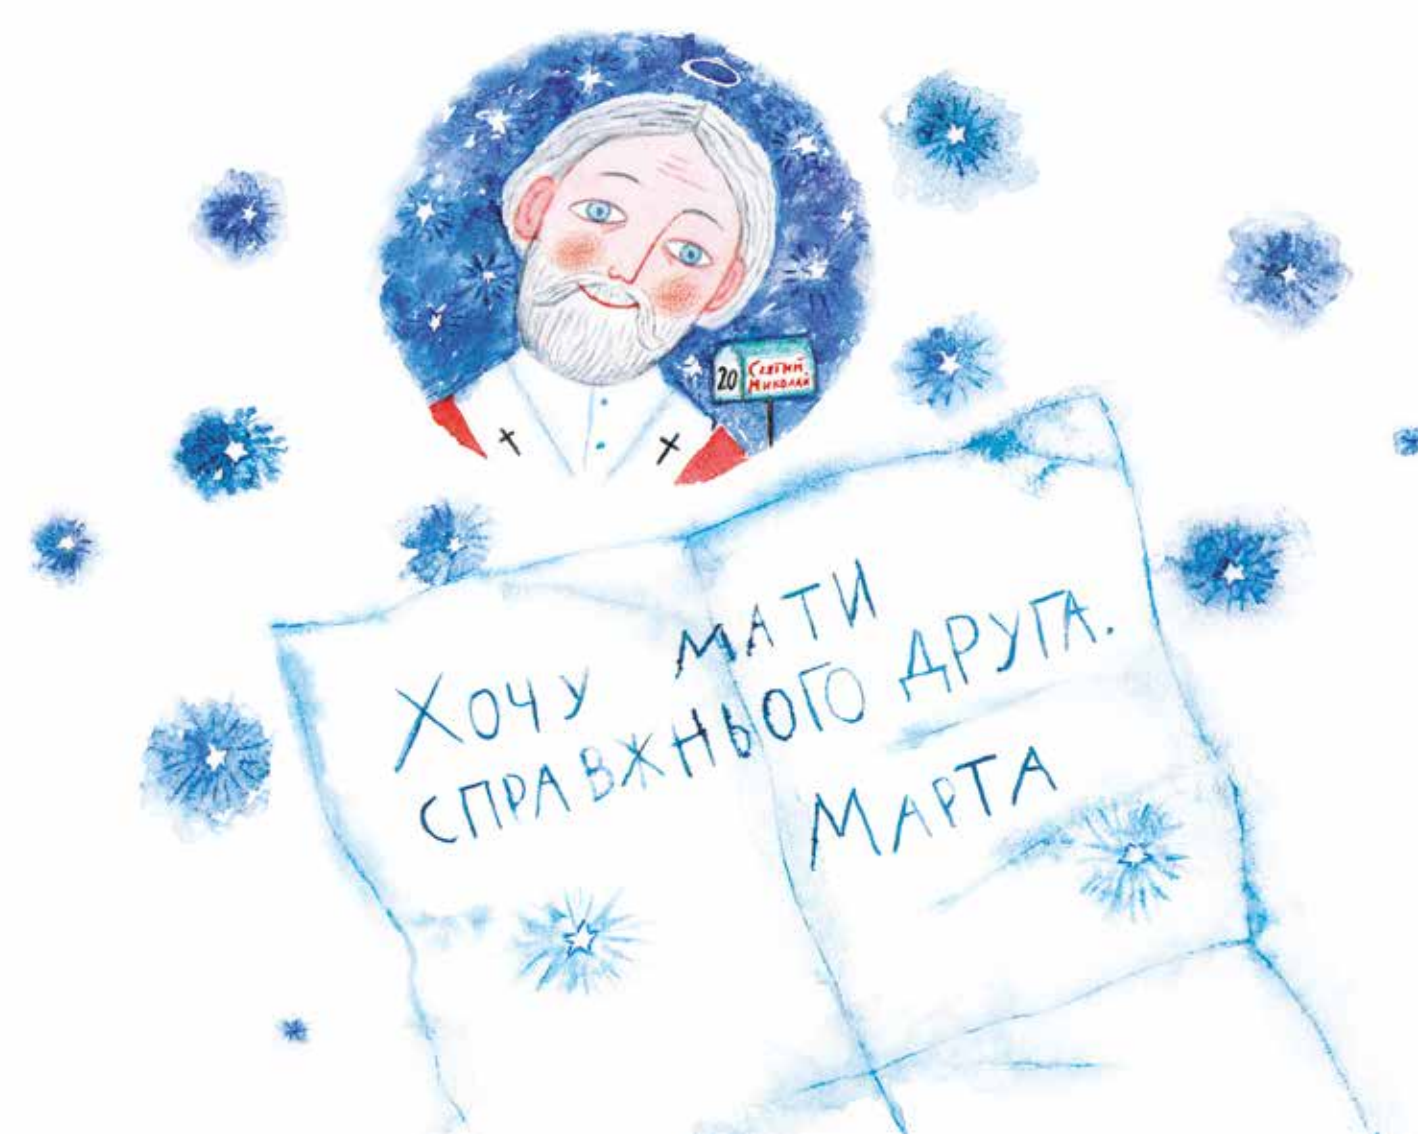 20
Святий
Миколай
Хочу мати
справжнього друга.
Марта